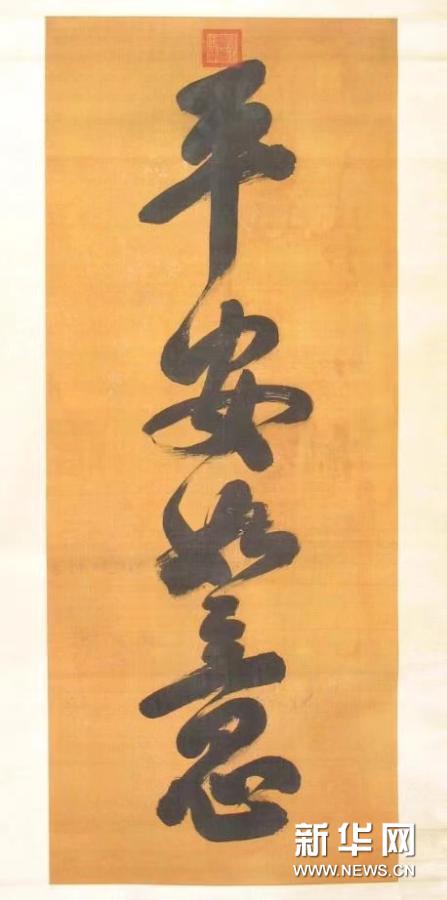 平安如意
新华网
WWW.NEWS.CN